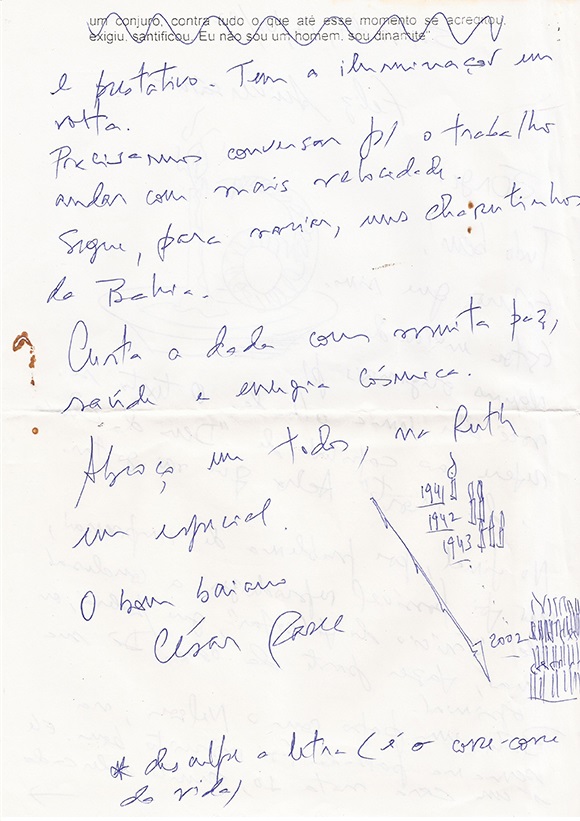 um conjuro, contra tudo o que até esse momento se acreditou,
exigiu, santificou. Eu não sou um homem, sou dinamite".
e prestativo. Tem a iluminação em
volta.
Precisamos conversar p/ o trabalho
andar com mais velocidade.
Segue, para variar, uns charutinhos
da Bahia.
Curta a data com muita paz,
saúde e energia cósmica.
Abraço em todos, na Ruth
em especial.
1941
1942
1943
O bom baiano
César
2002
* desculpe a letra (é o corre-corre
da vida)